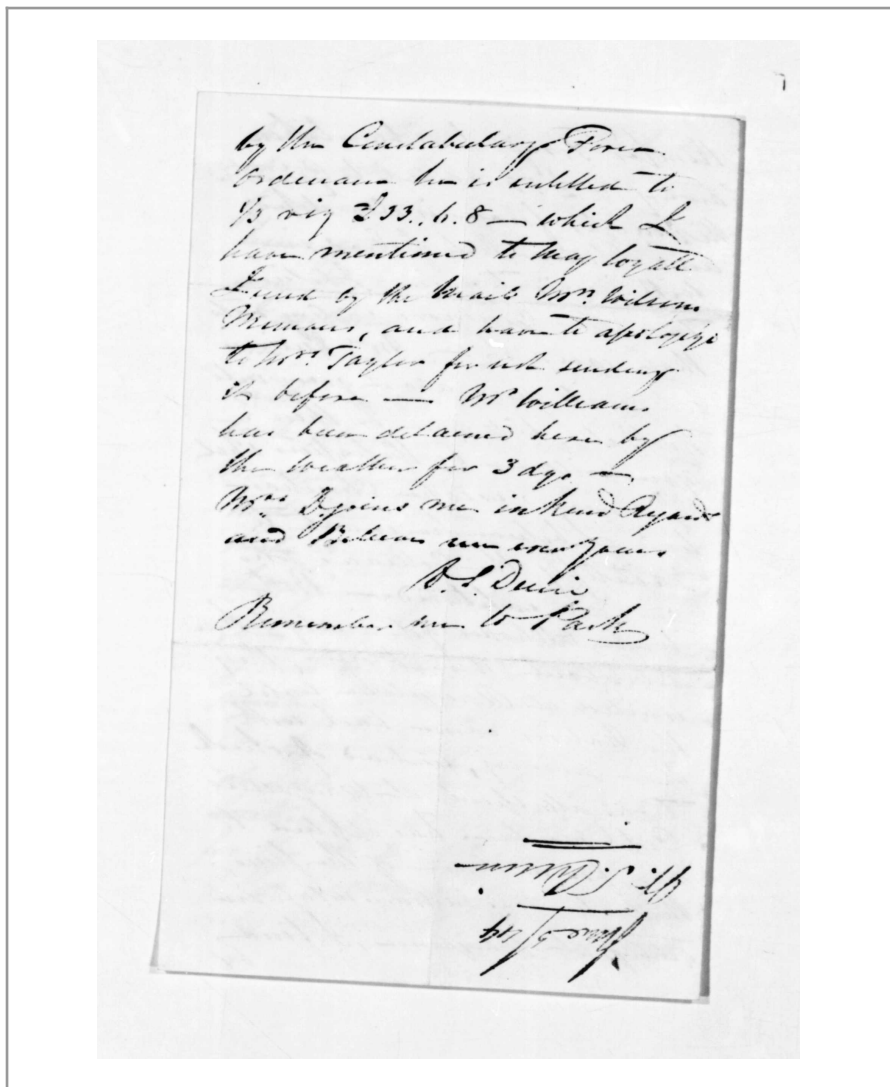 by the Constabulary Force
Ordinance he is entitled to
1/3 viz £33..6.8 — which I
have mentioned to
I send by the Mail Mrs. Wilsons
Memoirs, and have to apologize
to Mrs. Taylor for not sending
it before — Mr Williams
has been detained here by
the weather for 3 dys. —
Mrs D. joins me in kind Regards
and Believe me ever yours
Remember me to Park
June 5/49